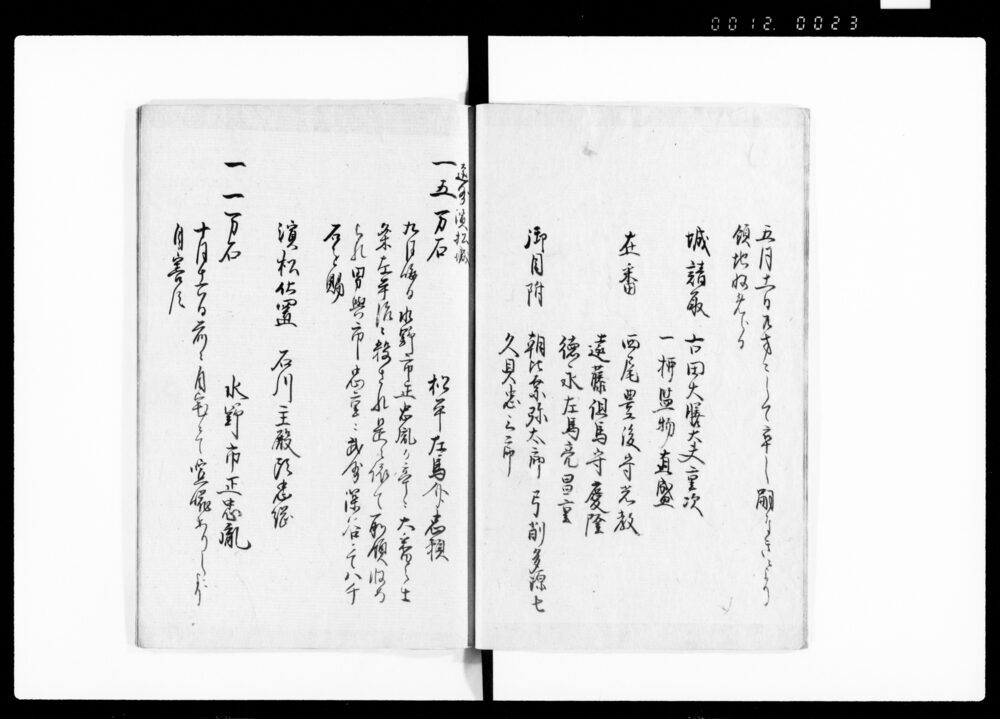 0012. 0023
五月十一日九才にして卒し嗣なきにより
領地収めらる
城請取 古田大膳大夫重次
一柳監物直盛
在番 西尾豊後守光教
遠藤但馬守慶隆
徳永左馬亮昌重
御目附 朝比奈弥太郎 弓削多源七
久貝忠三郎
遠州濱松城
一五万石 松平左馬允忠頼
九月 水野市正忠胤 大番士
左平治 殺され是に依て所領収
られ男與市忠重に武州深谷にて八千
石を賜
濱松仕置 石川主殿頭忠総
一一万石 水野市正忠胤
十月 日 自宅にて あり
自害